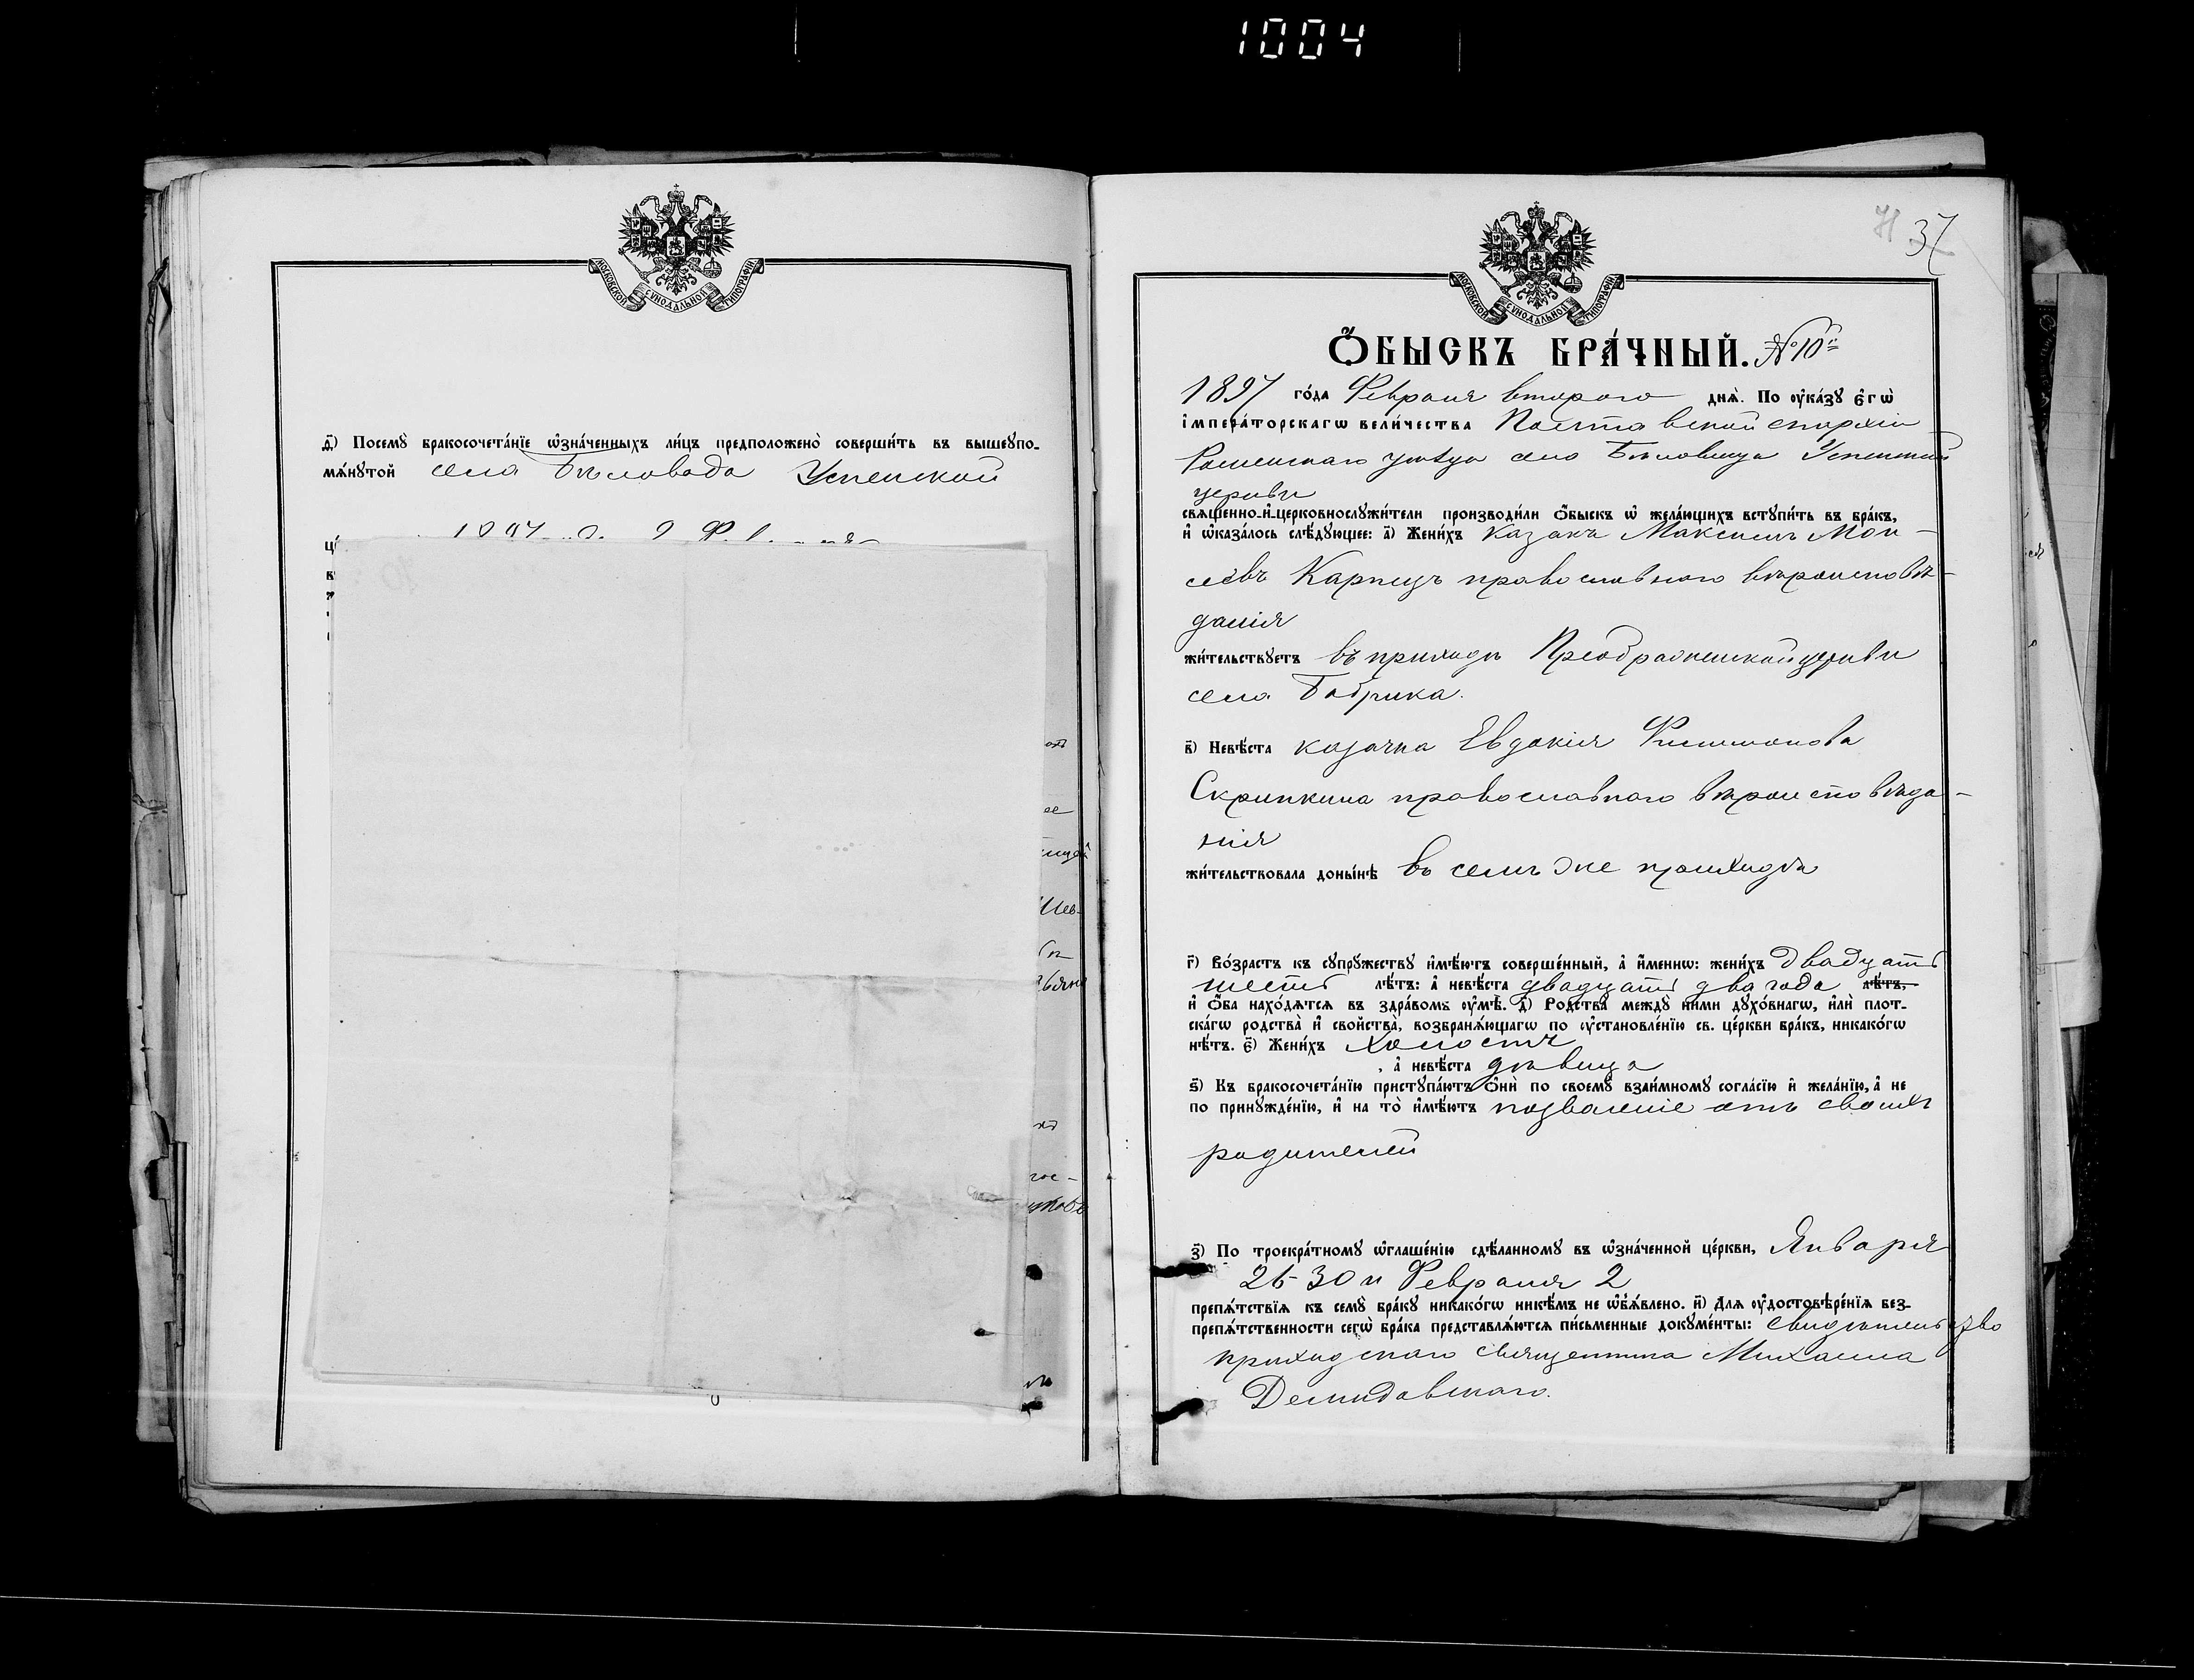 1004
МОСКОВСКОЙ СУНОДАЛЬНОЙ ТИПОГРАФІИ
д҃) Посемꙋ̀ бракосочета́нїе ѡ҆зна́ченныхъ ли́цъ предположено̀ соверши́ть въ вышеꙋпо-
мѧ́нꙋтой села Бѣловода Успенской
МОСКОВСКОЙ СУНОДАЛЬНОЙ ТИПОГРАФІИ
37
Ѻ҆БЫСКЪ БРА́ЧНЫЙ. № 10й
1897 го́да Февраля второго днѧ̀. По ᲂу҆ка́зꙋ Є҆гѡ̀
і҆мпера́торскагѡ вели́чества Полтавской епархіи
Роменскаго уѣзда села Бѣловода Успенской
церкви
свѧще́нно-и҆-церковнослꙋжи́тели производи́ли ѻ҆́быскъ ѡ҆ жела́ющихъ встꙋпи́ть въ бра́къ,
и҆ ѡ҆каза́лось слѣ́дꙋющее: а҃) Жени́хъ казакъ Максимъ Мои-
сеевъ Карпецъ православнаго вѣроисповѣ-
данія
жи́тельствꙋетъ въ приходѣ Преображенской церкви
села Бобрика.
в҃) Невѣ́ста козачка Евдокія Филимонова
Скрипкина православнаго вѣроисповѣда-
нія
жи́тельствовала доны́нѣ въ семъ же приходѣ
г҃) Во́зрастъ къ сꙋпрꙋжествꙋ и҆мѣ́ютъ соверше́нный, а҆ и҆́меннѡ: жени́хъ двадцать
шесть лѣ́тъ: а҆ невѣ́ста двадцать два года лѣ́тъ,
и҆ ѻ҆́ба нахо́дѧтсѧ въ здра́вомъ ᲂу҆мѣ̀. д҃) Родства̀ междꙋ̀ ни́ми дꙋхо́внагѡ, и҆лѝ плот-
ска́гѡ родства̀ и҆ свойства̀, возбранѧ́ющагѡ по ᲂу҆становле́нїю св. це́ркви бра́къ, никако́гѡ
нѣ́тъ. є҃) Жени́хъ холостъ
, а҆ невѣ́ста дѣвица
ѕ҃) Къ бракосочета́нїю пристꙋпа́ютъ ѻ҆нѝ по своемꙋ̀ взаи́мномꙋ согла́сїю и҆ жела́нїю, а҆ не
по принꙋжде́нїю, и҆ на то̀ и҆мѣ́ютъ позволеніе отъ своихъ
родителей
з҃) По троекра́тномꙋ ѡ҆глаше́нїю сдѣ́ланномꙋ въ ѡ҆зна́ченной це́ркви, Января
26 30 и Февраля 2
препѧ́тствїѧ къ семꙋ̀ бра́кꙋ никако́гѡ никѣ́мъ не ѡ҆б̾ѧ́влено. и҃) Длѧ ᲂу҆достовѣре́нїѧ без-
препѧ́тственности сегѡ̀ бра́ка представлѧ́ютсѧ пи́сьменные докꙋме́нты: свидѣтельство
приходскаго священника Михаила
Демидовскаго.